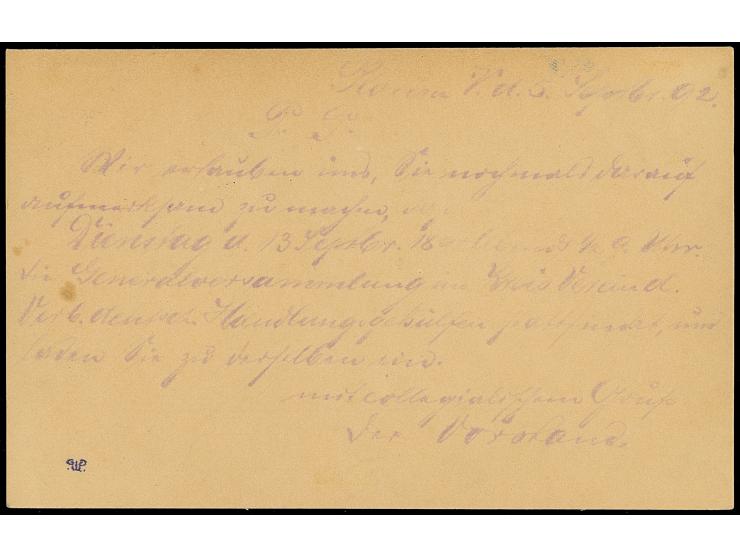 V. d. 5. Septbr. 92.
P. P.
Wir erlauben uns, Sie nochmals darauf
aufmerksam zu machen,
Dienstag d. 13 Septbr. Uhr.
die Generalversammlung im Kreis Verein d.
Verb. deutsch. Handlungsgehülfen stattfindet, und
laden Sie zu derselben ein.
mit collegialischem Gruß
Der Vorstand.